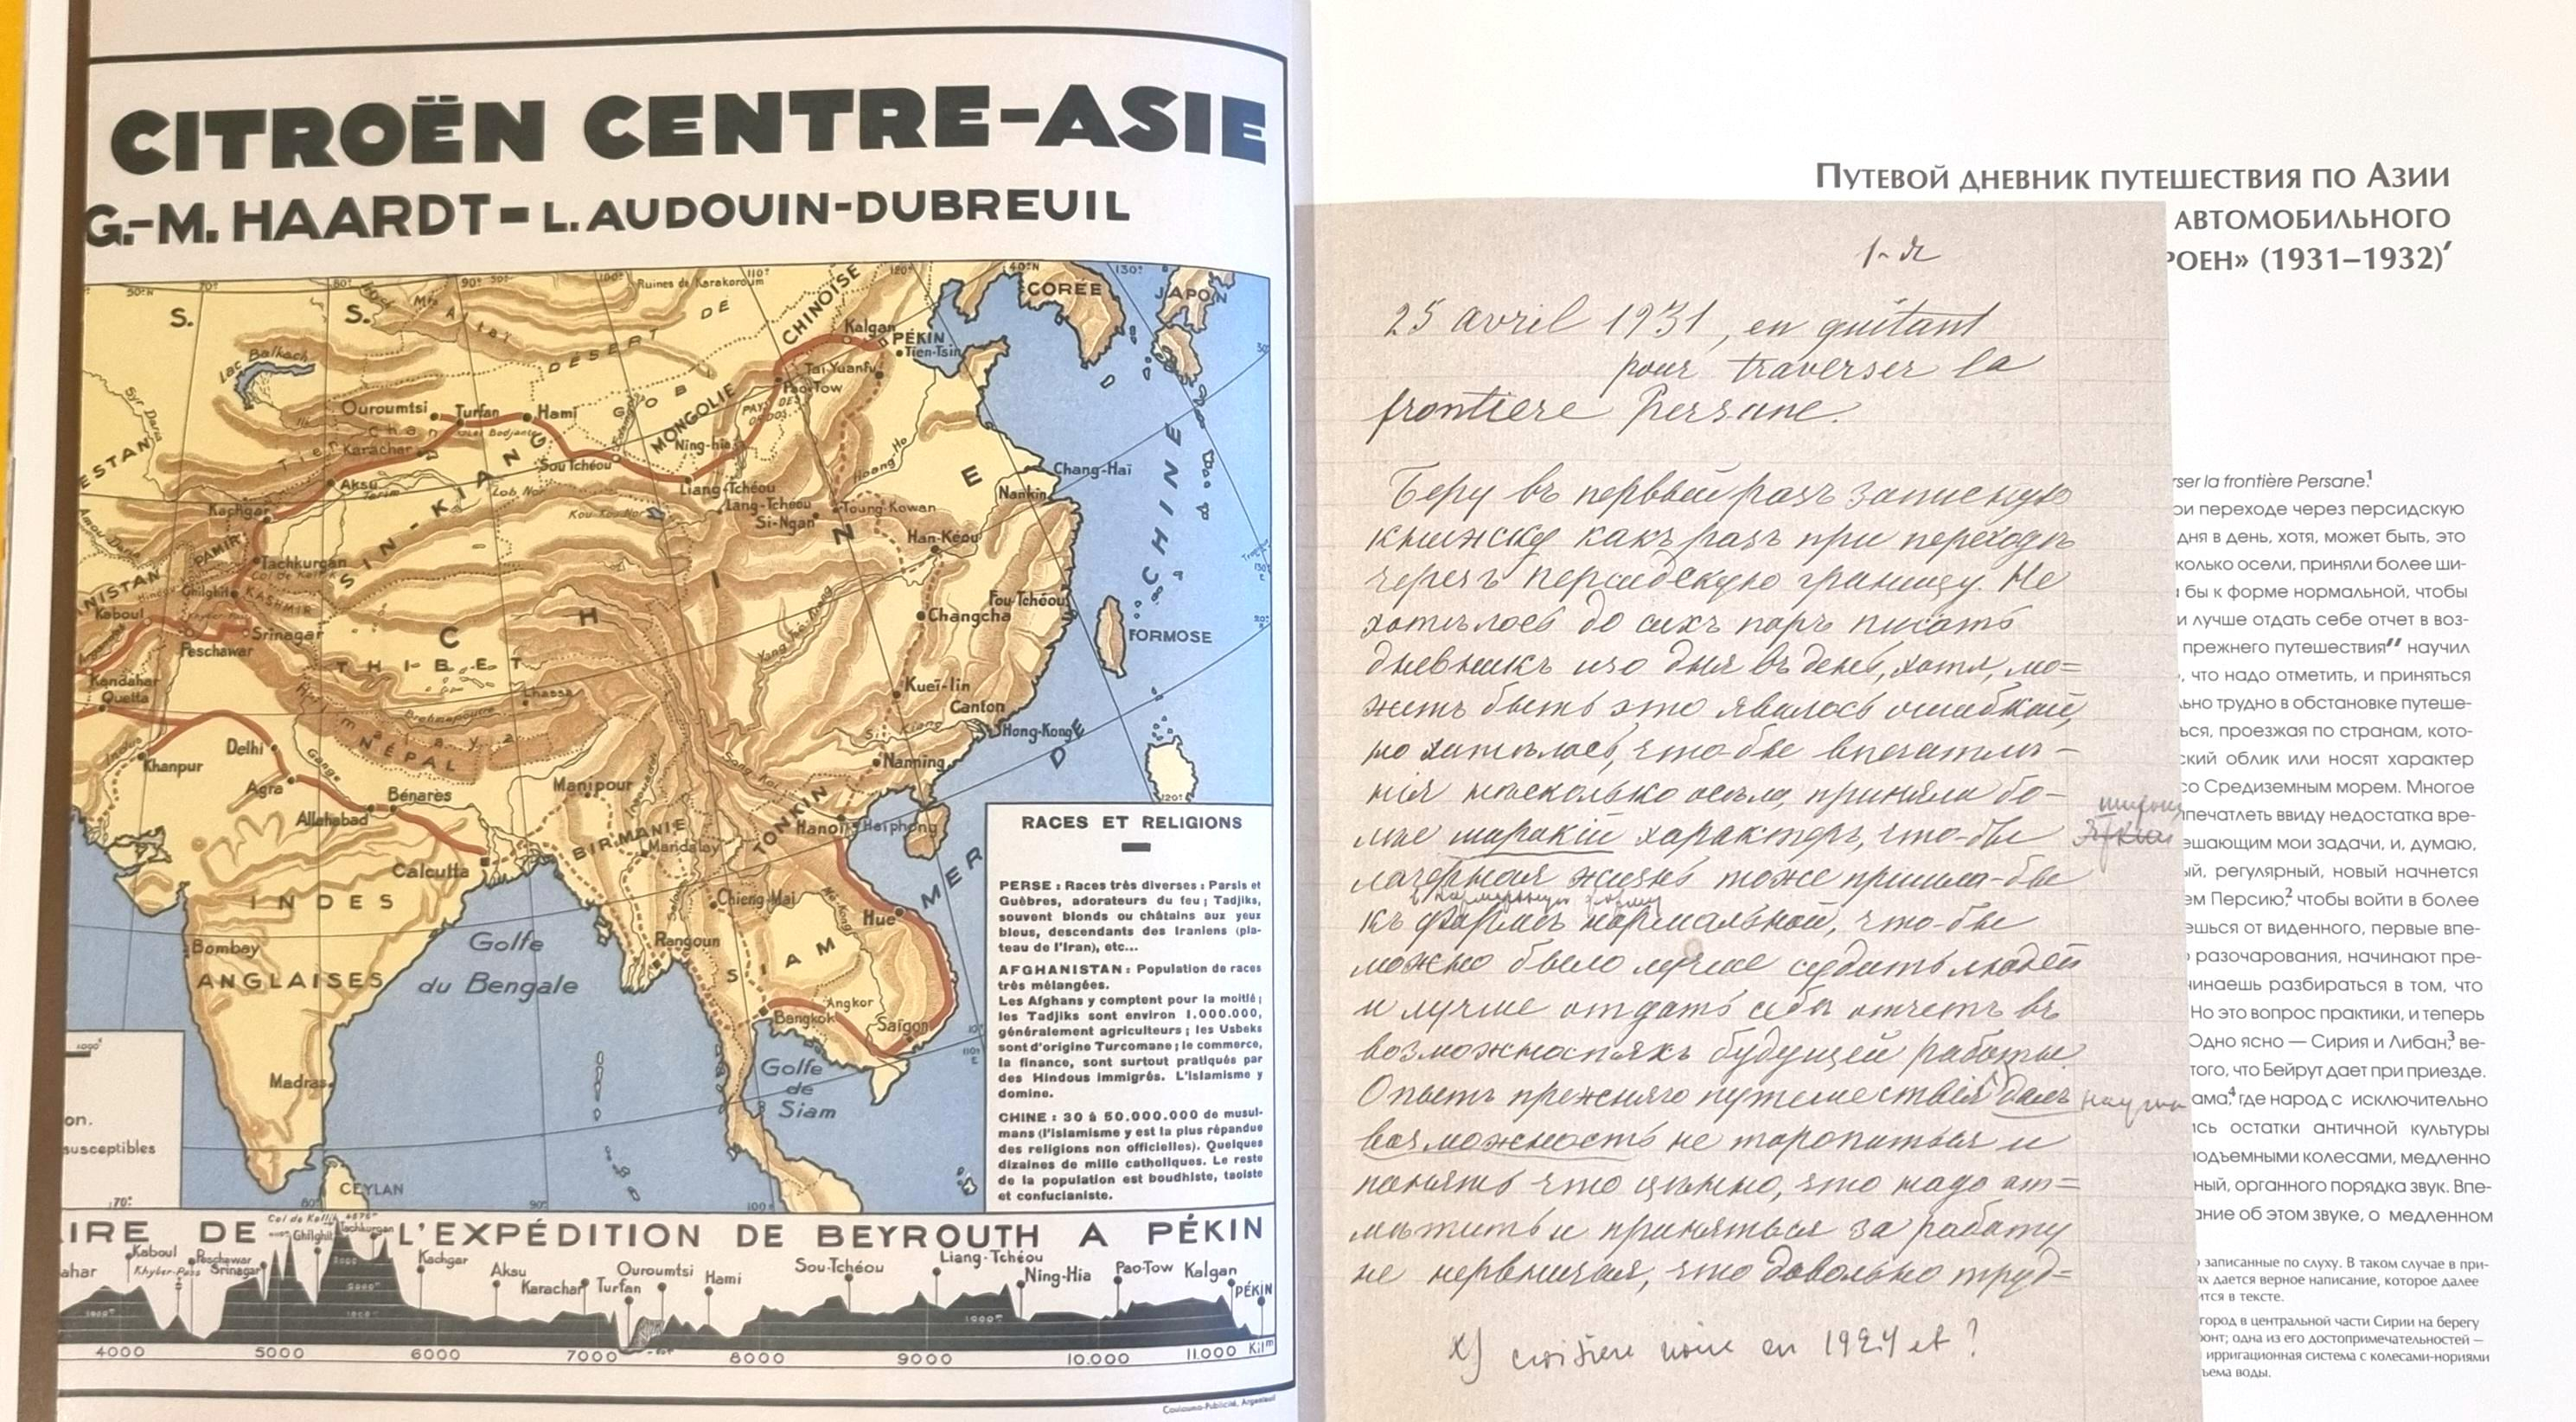 CITROËN CENTRE-ASIE
G.-M. HAARDT - L. AUDOUIN-DUBREUIL
50°N 70° 80° 90° 50° 100° 110° 120° 40°N 130°
S. S.
Mts Altaï
Ruines de Karakoroum
DÉSERT DE GOBI
MONGOLIE CHINOISE
CORÉE
JAPON
Lac Balkach
Kalgan
PÉKIN
Tien-Tsin
Tai-Yuanfu
Pao-Tow
PAYS DES ORDOS
Ouroumtsi
Turfan
Hami
Syr Daria
Tien Chan
Karachar
Ning-hia
Sou Tchéou
Hoang-Ho
Aksu
Tarim
Lob Nor
Liang-Tchéou
Lang-Tchéou
Si-Ngan
Toung-Kowan
Chang-Haï
Nankin
Kachgar
SIN-KIANG
Kou-Kou-Nor
Han-Kéou
PAMIR
Tachkurgan
Ghilghit
KASHMIR
Kaboul
Khyber-Pass
Srinagar
Peschawar
CHINE
Fou-Tchéou
Changcha
FORMOSE
THIBET
Yang-Tsé-Kiang
Kandahar
Quetta
Lhassa
Brahmapoutre
Himalaya
NÉPAL
Kueï-lin
Canton
Si-Kiang
Hong-Kong
Nanning
Indus
Khanpur
Delhi
Gange
Agra
Allahabad
Bénares
Manipour
Song Koï
TONKIN
Hanoï
Haïphong
BIRMANIE
Mandalay
Calcutta
MER DE CHINE
INDES
ANGLAISES
Bombay
Golfe
du Bengale
Chieng-Mai
Salouen
Mé-Kong
Hué
Rangoun
SIAM
Angkor
Bangkok
Saïgon
Golfe
de
Siam
Madras
CEYLAN
on.
susceptibles
70° 80° 90° 100°
RACES ET RELIGIONS
PERSE : Races très diverses : Parsis et
Guèbres, adorateurs du feu ; Tadjiks,
souvent blonds ou châtains aux yeux
bleus, descendants des Iraniens (pla-
teau de l'Iran), etc...
AFGHANISTAN : Population de races
très mélangées.
Les Afghans y comptent pour la moitié ;
les Tadjiks sont environ 1.000.000,
généralement agriculteurs ; les Usbeks
sont d'origine Turcomane ; le commerce,
la finance, sont surtout pratiqués par
des Hindous immigrés. L'islamisme y
domine.
CHINE : 30 à 50.000.000 de musul-
mans (l'islamisme y est la plus répandue
des religions non officielles). Quelques
dizaines de mille catholiques. Le reste
de la population est boudhiste, taoïste
et confucianiste.
IRE DE L'EXPÉDITION DE BEYROUTH A PÉKIN
ahar Kaboul Khyber-Pass Peschawar Srinagar Ghilghit Tachkurgan Kachgar Aksu Karachar Turfan Ouroumtsi Hami Sou-Tchéou Liang-Tchéou Ning-Hia Pao-Tow Kalgan PÉKIN
4000 5000 6000 7000 8000 9000 10.000 11.000 Kilm
Coulouma-Publicité, Argenteuil
Путевой дневник путешествия по Азии
автомобильного
роен» (1931–1932)
1-я
25 avril 1931, en quitant
pour traverser la
frontiere Persane.
Беру въ первый разъ записную
книжку какъ разъ при переходѣ
черезъ персидскую границу. Не
хотѣлось до сихъ поръ писать
дневникъ изо дня въ день, хотя, мо=
жетъ быть это явилось ошибкой,
но хотѣлось, что-бы впечатлѣ-
нія насколько осѣли, приняли бо-
лѣе широкій характеръ, что-бы
лагерная жизнь тоже пришла-бы
въ нормальную форму
къ формѣ нормальной, что-бы
можно было лучше судить людей
и лучше отдать себѣ отчетъ въ
возможностяхъ будущей работы.
Опытъ прежняго путешествія далъ
возможность не торопиться и
понять что цѣнно, что надо от=
мѣтить и приняться за работу
не нервничая, что довольно труд=
x) croisiere noire en 1924 et ?
rser la frontière Persane.1
ри переходе через персидскую
дня в день, хотя, может быть, это
колько осели, приняли более ши-
бы к форме нормальной, чтобы
и лучше отдать себе отчет в воз-
прежнего путешествия научил
, что надо отметить, и приняться
ьно трудно в обстановке путеше-
ься, проезжая по странам, кото-
ский облик или носят характер
со Средиземным морем. Многое
печатлеть ввиду недостатка вре-
ешающим мои задачи, и, думаю,
ый, регулярный, новый начнется
ем Персию,2 чтобы войти в более
ешься от виденного, первые впе-
разочарования, начинают пре-
чинаешь разбираться в том, что
Но это вопрос практики, и теперь
Одно ясно — Сирия и Ливан,3 ве-
того, что Бейрут дает при приезде.
ама,4 где народ с исключительно
сь остатки античной культуры
одъемными колесами, медленно
ный, органного порядка звук. Впе-
ание об этом звуке, о медленном
записанные по слуху. В таком случае в при-
ях дается верное написание, которое далее
ится в тексте.
город в центральной части Сирии на берегу
онт; одна из его достопримечательностей —
ирригационная система с колесами-нориями
ъема воды.